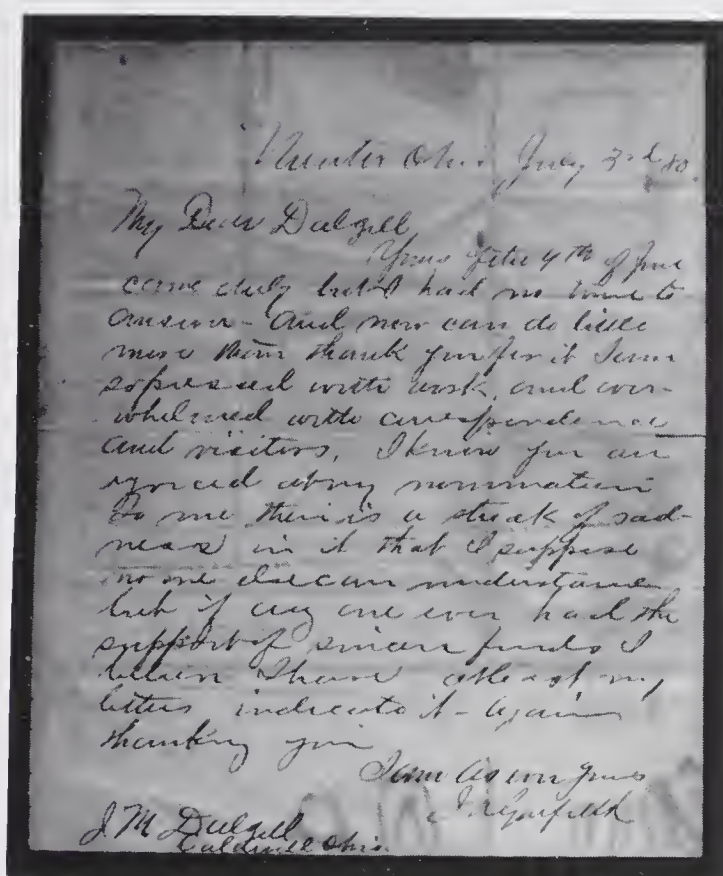 Mentor Ohio July 3rd 80.
My Dear Dalzell
Yours of the 4th of June
came duly but I had no time to
answer - And now can do little
more than thank you for it I am
so pressed with work, and over-
whelmed with correspondence
and visitors, I know you are
rejoiced at my nomination
To me there is a streak of sad-
ness in it that I suppose
no one else can understand
but if any one ever had the
support of sincere friends I
believe I have at least my
letters indicate it - Again
thanking you
I am as ever yours
J. A. Garfield
J. M. Dalzell
Caldwell Ohio.